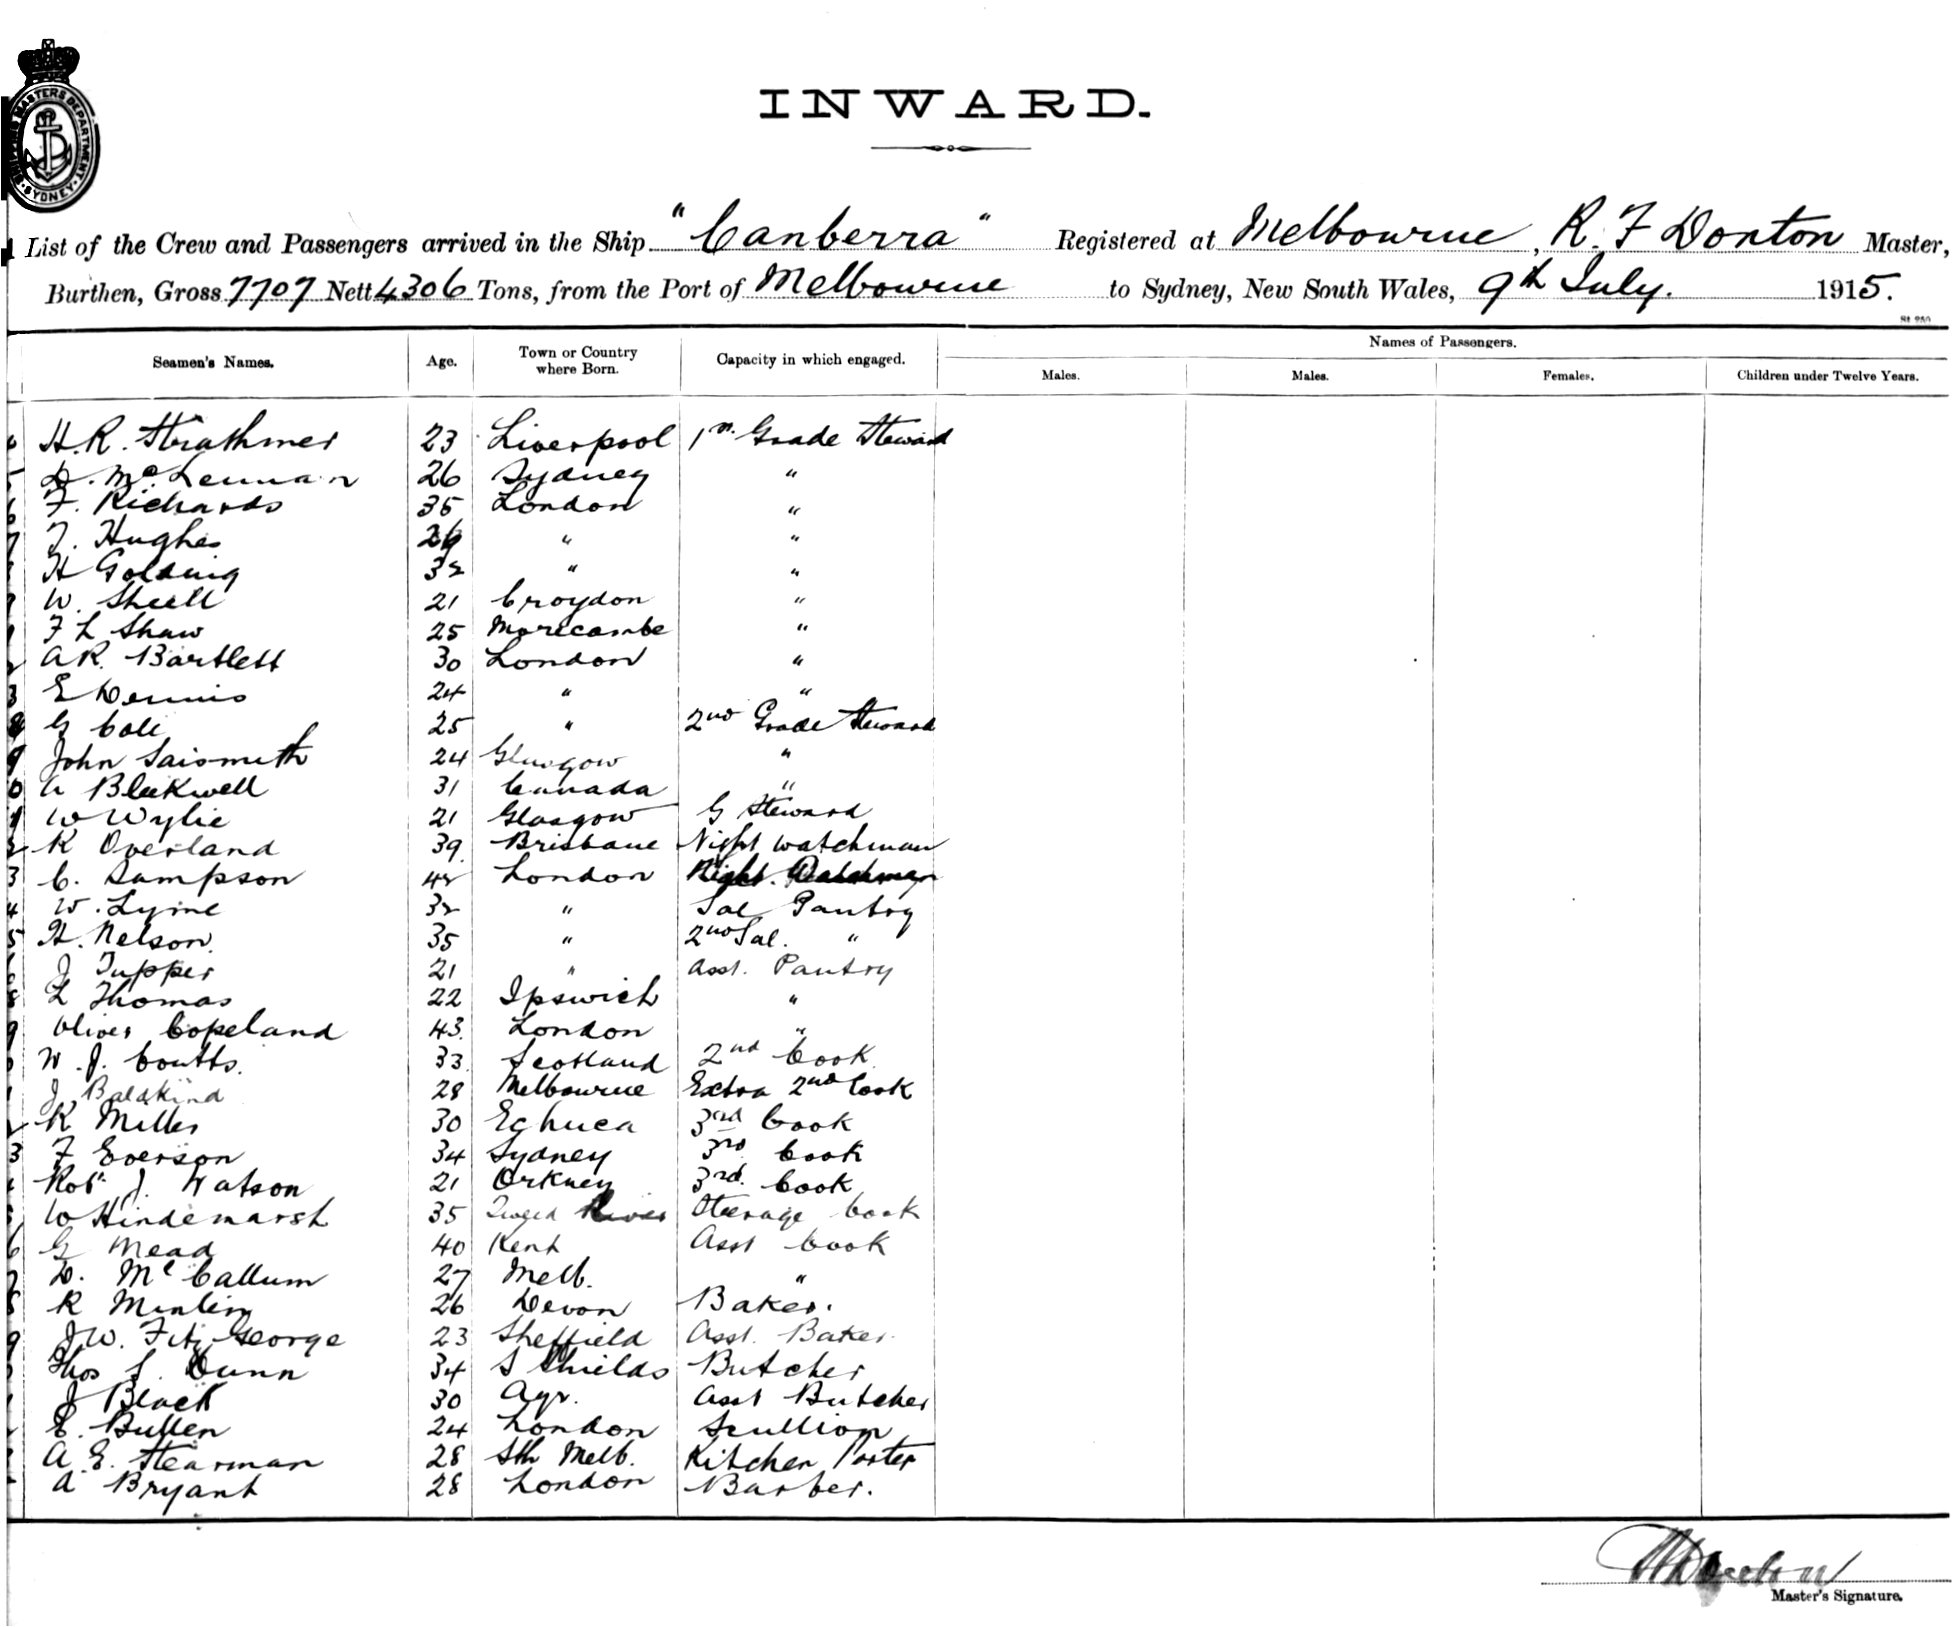 INWARD.
SHIPPING MASTERS DEPARTMENT SYDNEY
List of the Crew and Passengers arrived in the Ship "Canberra" Registered at Melbourne, R. F Donton Master,
Burthen, Gross 7707 Nett 4306 Tons, from the Port of Melbourne to Sydney, New South Wales, 9th July. 1915.
Names of Passengers.
Seamen's Names. Age. Town or Country where Born. Capacity in which engaged. Males. Males. Females. Children under Twelve Years.
H. R. Strathmer 23 Liverpool 1st Grade Steward
D. McLennan 26 Sydney "
F. Richards 35 London "
T. Hughes " "
H Golding 32 " "
W. Sheell 21 Croydon "
F L Shaw 25 Morecambe "
A R. Bartlett 30 London "
E Dennis 24 " "
G Cole 25 " 2nd Grade Steward
John 24 Glasgow "
A Blekwell 31 Canada "
W Wylie 21 Glasgow G Steward
R Overland 39 Brisbane Night watchman
C. Sampson 42 London Night. Watchman
W. Lyne 32 " Sal Pantry
H. Nelson. 35 " 2nd Sal. "
J Tupper 21 " Asst. Pantry
L Thomas 22 Ipswich "
Oliver Copeland 43. London "
W. J. Coutts. 33. Scotland 2nd Cook
J Baldkind 28 Melbourne Extra 2nd Cook
R Miller 30 Echuca 3rd Cook
F Everson 34 Sydney 3rd Cook
Robt J. Watson 21 Orkney 3rd. Cook
W Hindemarsh 35 Tweed River Steerage Cook
G Mead 40 Kent Asst Cook
D. McCallum 27 Melb. "
R 26 Devon Baker.
J W. Fitz George 23 Sheffield Asst. Baker.
Thos S. Dunn 34 S Shields Butcher
J Black 30 Ayr. Asst Butcher
E. Bullen 24 London Scullion
A. E. Stearman 28 Sth Melb. Kitchen Porter
A Bryant 28 London Barber.
Master's Signature.